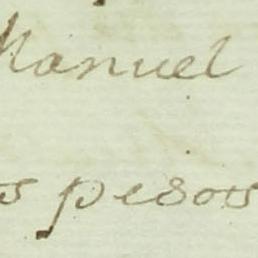 Manuel
s pesos